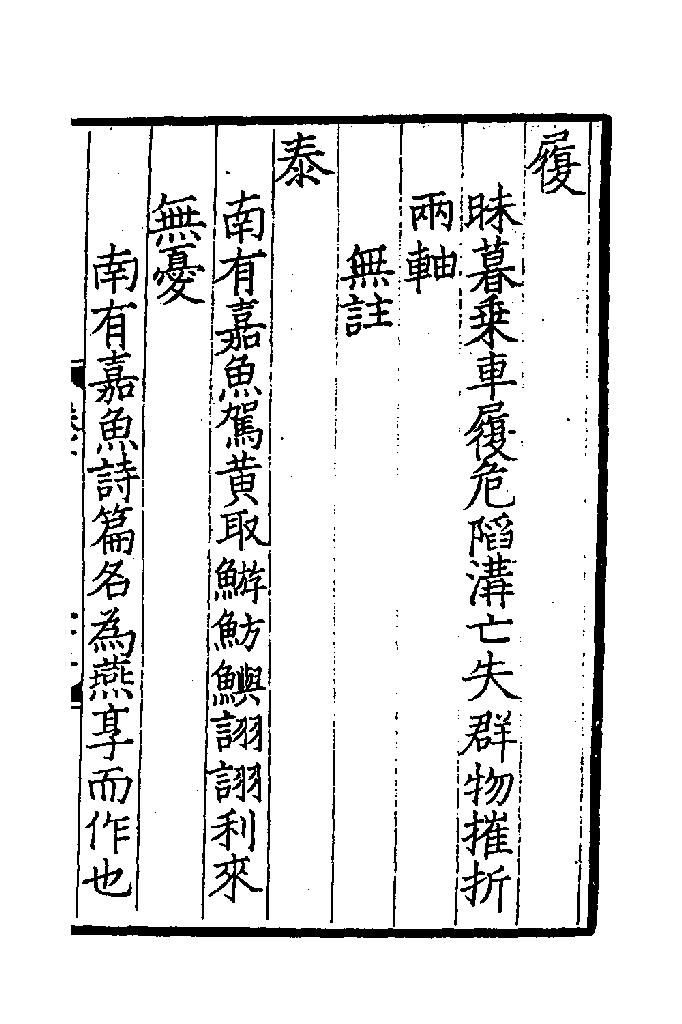 履
昧暮乗車履危陷溝亡失群物摧折
兩軸
無註
泰
南有嘉魚駕黄取鰷魴鱮詡詡利來
無憂
南有嘉魚詩篇名為燕享而作也